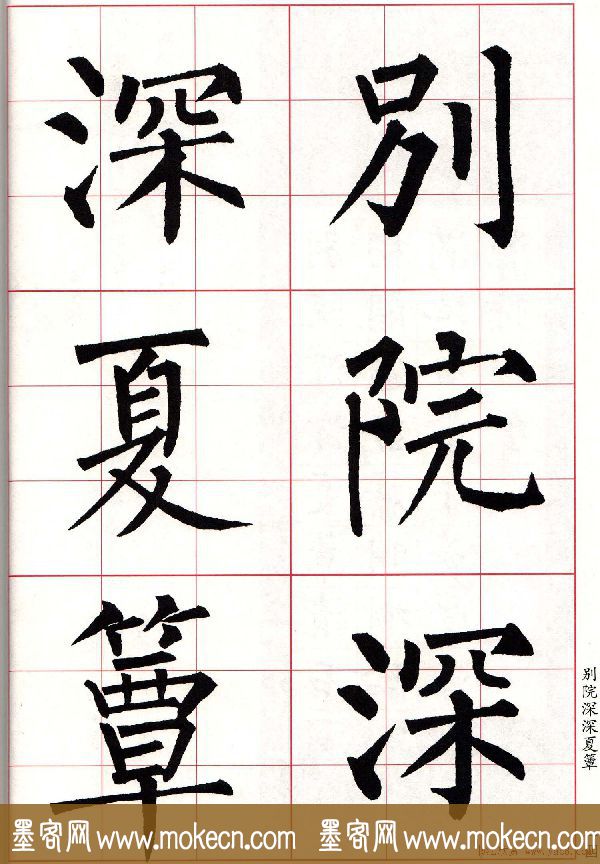 别院深
深夏簟
别院深深夏簟
墨客网 www.mokecn.com 墨客网 www.mokecn.com